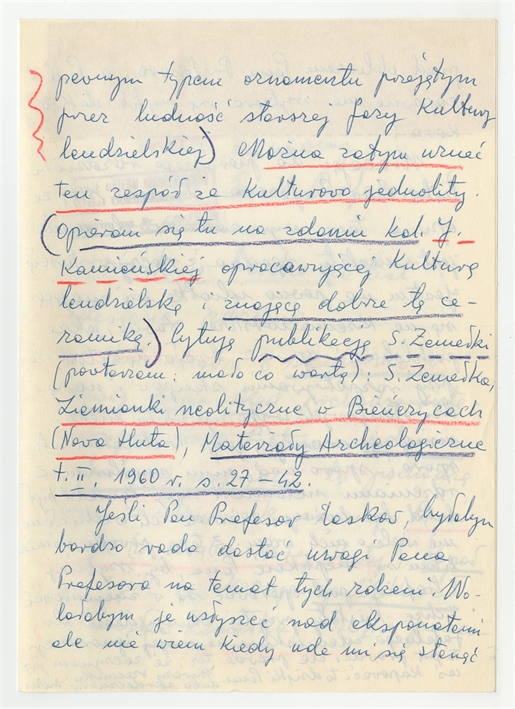 pewnym typem ornamentu przejętym
przez ludność starszej fazy Kultury
lendzielskiej) Można zatym uznać
ten zespół za Kulturowo jednolity.
(Opieram się tu na zdaniu kol. J.
Kamieńskiej opracowującej Kulturę
lendzielską i znającą dobrze tę ce-
ramikę.) Cytuję publikację S. Zemełki
(powtarzam: mało co warta): S. Zemełka,
Ziemianki neolityczne w Bieńczycach
(Nowa Huta), Materiały Archeologiczne
t. II. 1960 r. s. 27 – 42.
Jeśli Pan Profesor łaskaw, byłabym
bardzo rada dostać uwagi Pana
Profesora na temat tych
wolałabym je usłyszeć nad eksponatami
ale nie wiem kiedy uda mi się stanąć